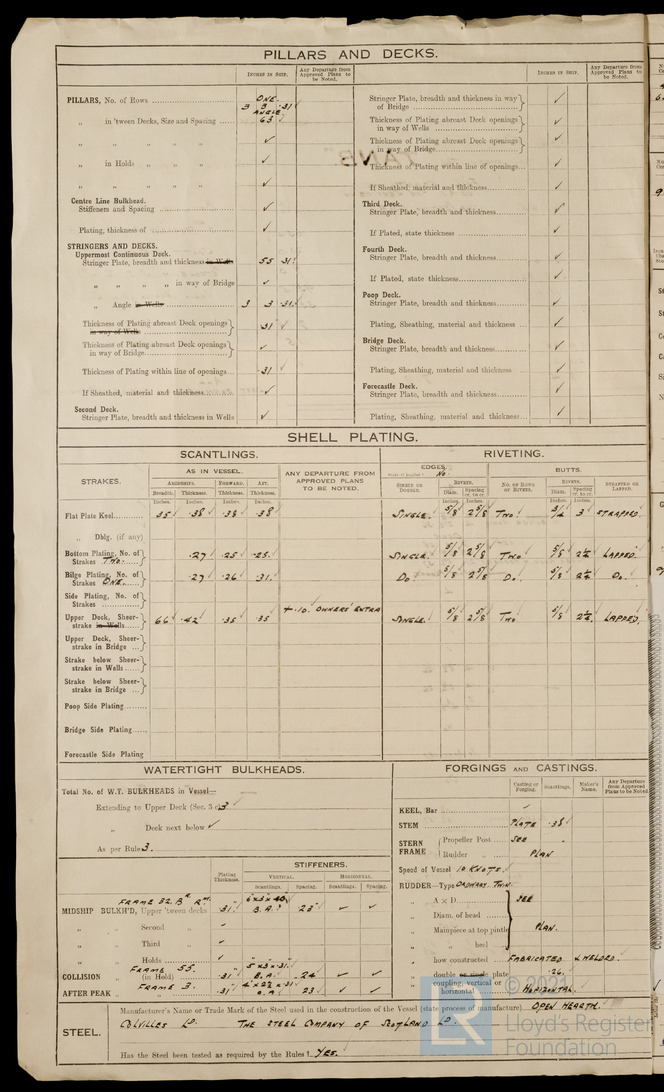 PILLARS AND DECKS.
INCHES IN SHIP.
Any Departure from Approved Plans to be Noted.
PILLARS, No. of Rows
ONE.
3 3 .31
ANGLE
„ in 'tween Decks, Size and Spacing ...... 63 ✓
„ „ „ „ ✓
„ in Holds „ „ ✓
„ „ „ „ ✓
Centre Line Bulkhead.
Stiffeners and Spacing ✓
Plating, thickness of ✓
STRINGERS AND DECKS.
Uppermost Continuous Deck.
Stringer Plate, breadth and thickness in Wells 55 .31
„ „ „ „ in way of Bridge ✓
„ Angle in Wells 3 3 .31
Thickness of Plating abreast Deck openings in way of Wells .31 ✓
Thickness of Plating abreast Deck openings in way of Bridge ✓
Thickness of Plating within line of openings... .31 ✓
If Sheathed, material and thickness ✓
Second Deck.
Stringer Plate, breadth and thickness in Wells ✓
INCHES IN SHIP.
Any Departure from Approved Plans to be Noted.
Stringer Plate, breadth and thickness in way of Bridge ✓
Thickness of Plating abreast Deck openings in way of Wells ✓
Thickness of Plating abreast Deck openings in way of Bridge ✓
Thickness of Plating within line of openings... ✓
If Sheathed, material and thickness ✓
Third Deck.
Stringer Plate, breadth and thickness ✓
If Plated, state thickness ✓
Fourth Deck.
Stringer Plate, breadth and thickness ✓
If Plated, state thickness ✓
Poop Deck.
Stringer Plate, breadth and thickness ✓
Plating, Sheathing, material and thickness ... ✓
Bridge Deck.
Stringer Plate, breadth and thickness ✓
Plating, Sheathing, material and thickness ✓
Forecastle Deck.
Stringer Plate, breadth and thickness ✓
Plating, Sheathing, material and thickness... ✓
SHELL PLATING.
SCANTLINGS.
RIVETING.
STRAKES.
AS IN VESSEL.
AMIDSHIPS. FORWARD. AFT.
Breadth. Thickness. Thickness. Thickness.
Inches. Inches. Inches. Inches.
ANY DEPARTURE FROM APPROVED PLANS TO BE NOTED.
EDGES.
No.
SINGLE OR DOUBLE.
RIVETS.
Diam. Spacing cr. to cr.
Inches. Inches.
BUTTS.
NO. OF ROWS OF RIVETS.
RIVETS.
Diam. Spacing cr. to cr.
Inches. Inches.
STRAPPED OR LAPPED.
Flat Plate Keel 35 .38 .38 .38 SINGLE. 5/8 2 5/8 TWO 3/4 3 STRAPPED.
„ Dblg. (if any)
Bottom Plating, No. of Strakes TWO. .27 .25 .25 SINGLE. 5/8 2 5/8 TWO 5/8 2 1/2 LAPPED.
Bilge Plating, No. of Strakes ONE. .27 .26 .31 Do 5/8 2 5/8 Do. 5/8 2 1/2 Do.
Side Plating, No. of Strakes
+.10. OWNERS' EXTRA
Upper Deck, Sheerstrake in Wells 66 .42 .35 .35 SINGLE. 5/8 2 5/8 TWO 5/8 2 1/2 LAPPED.
Upper Deck, Sheerstrake in Bridge
Strake below Sheerstrake in Wells
Strake below Sheerstrake in Bridge
Poop Side Plating
Bridge Side Plating
Forecastle Side Plating
WATERTIGHT BULKHEADS.
Total No. of W.T. BULKHEADS in Vessel—
Extending to Upper Deck (Sec. 3 c) 3 ✓
„ Deck next below ✓
As per Rule 3.
Plating Thickness.
STIFFENERS.
VERTICAL. HORIZONTAL.
Scantlings. Spacing. Scantlings. Spacing.
FRAME 32.
MIDSHIP BULKH'D, Upper 'tween decks .31 6 x 3 x .40 B.A. 23" ✓ ✓
„ „ Second „
„ „ Third „
„ „ Holds
FRAME 55.
COLLISION „ (in Hold) .31 5 x 3 x .31 B.A. 24 ✓ ✓
FRAME 3.
AFTER PEAK „ „ .31 23 ✓ ✓
FORGINGS AND CASTINGS.
Casting or Forging. Scantlings. Maker's Name. Any Departure from Approved Plans to be Noted.
KEEL, Bar ✓
STEM PLATE .38
STERN FRAME
Propeller Post SEE
Rudder „ PLAN
Speed of Vessel 10 KNOTS.
RUDDER—Type ORDINARY. TWIN.
„ A × D SEE
„ Diam. of head
„ Mainpiece at top pintle PLAN.
„ „ heel
„ how constructed FABRICATED & WELDED.
„ double or single plate .26.
„ coupling, vertical or horizontal HORIZONTAL.
STEEL.
Manufacturer's Name or Trade Mark of the Steel used in the construction of the Vessel (state process of manufacture) OPEN HEARTH.
COLVILLES LD. THE STEEL COMPANY OF SCOTLAND LD.
Has the Steel been tested as required by the Rules? YES.
LR
© 2021
Lloyd's Register
Foundation